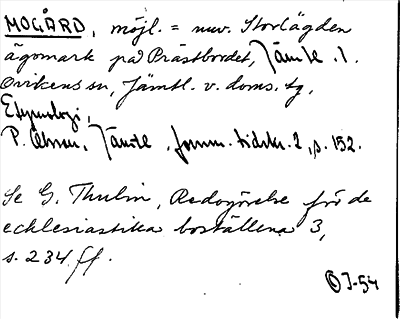 MOGÅRD, möjl. = nuv. Storlägden
ägomark på Prästbordet, Jämtl. l.
Ovikens sn, Jämtl. v. doms. tg,
Etymologi,
P. Olsson, Jämtl. fornm. tidskr. 2, s. 152.
Se G. Thulin, Redogörelse för de
ecklesiastika boställena 3,
s. 234 ff.
OJ-54